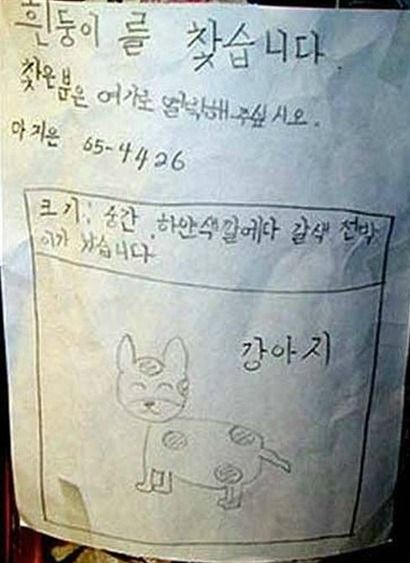 흰둥이 를 찾습니다.
찾은분은 여기로 열박해 주십 시오.
마지은 65-4426
크기: 중간, 하얀색깔에다 갈색 점박
이가 있습니다
강아지